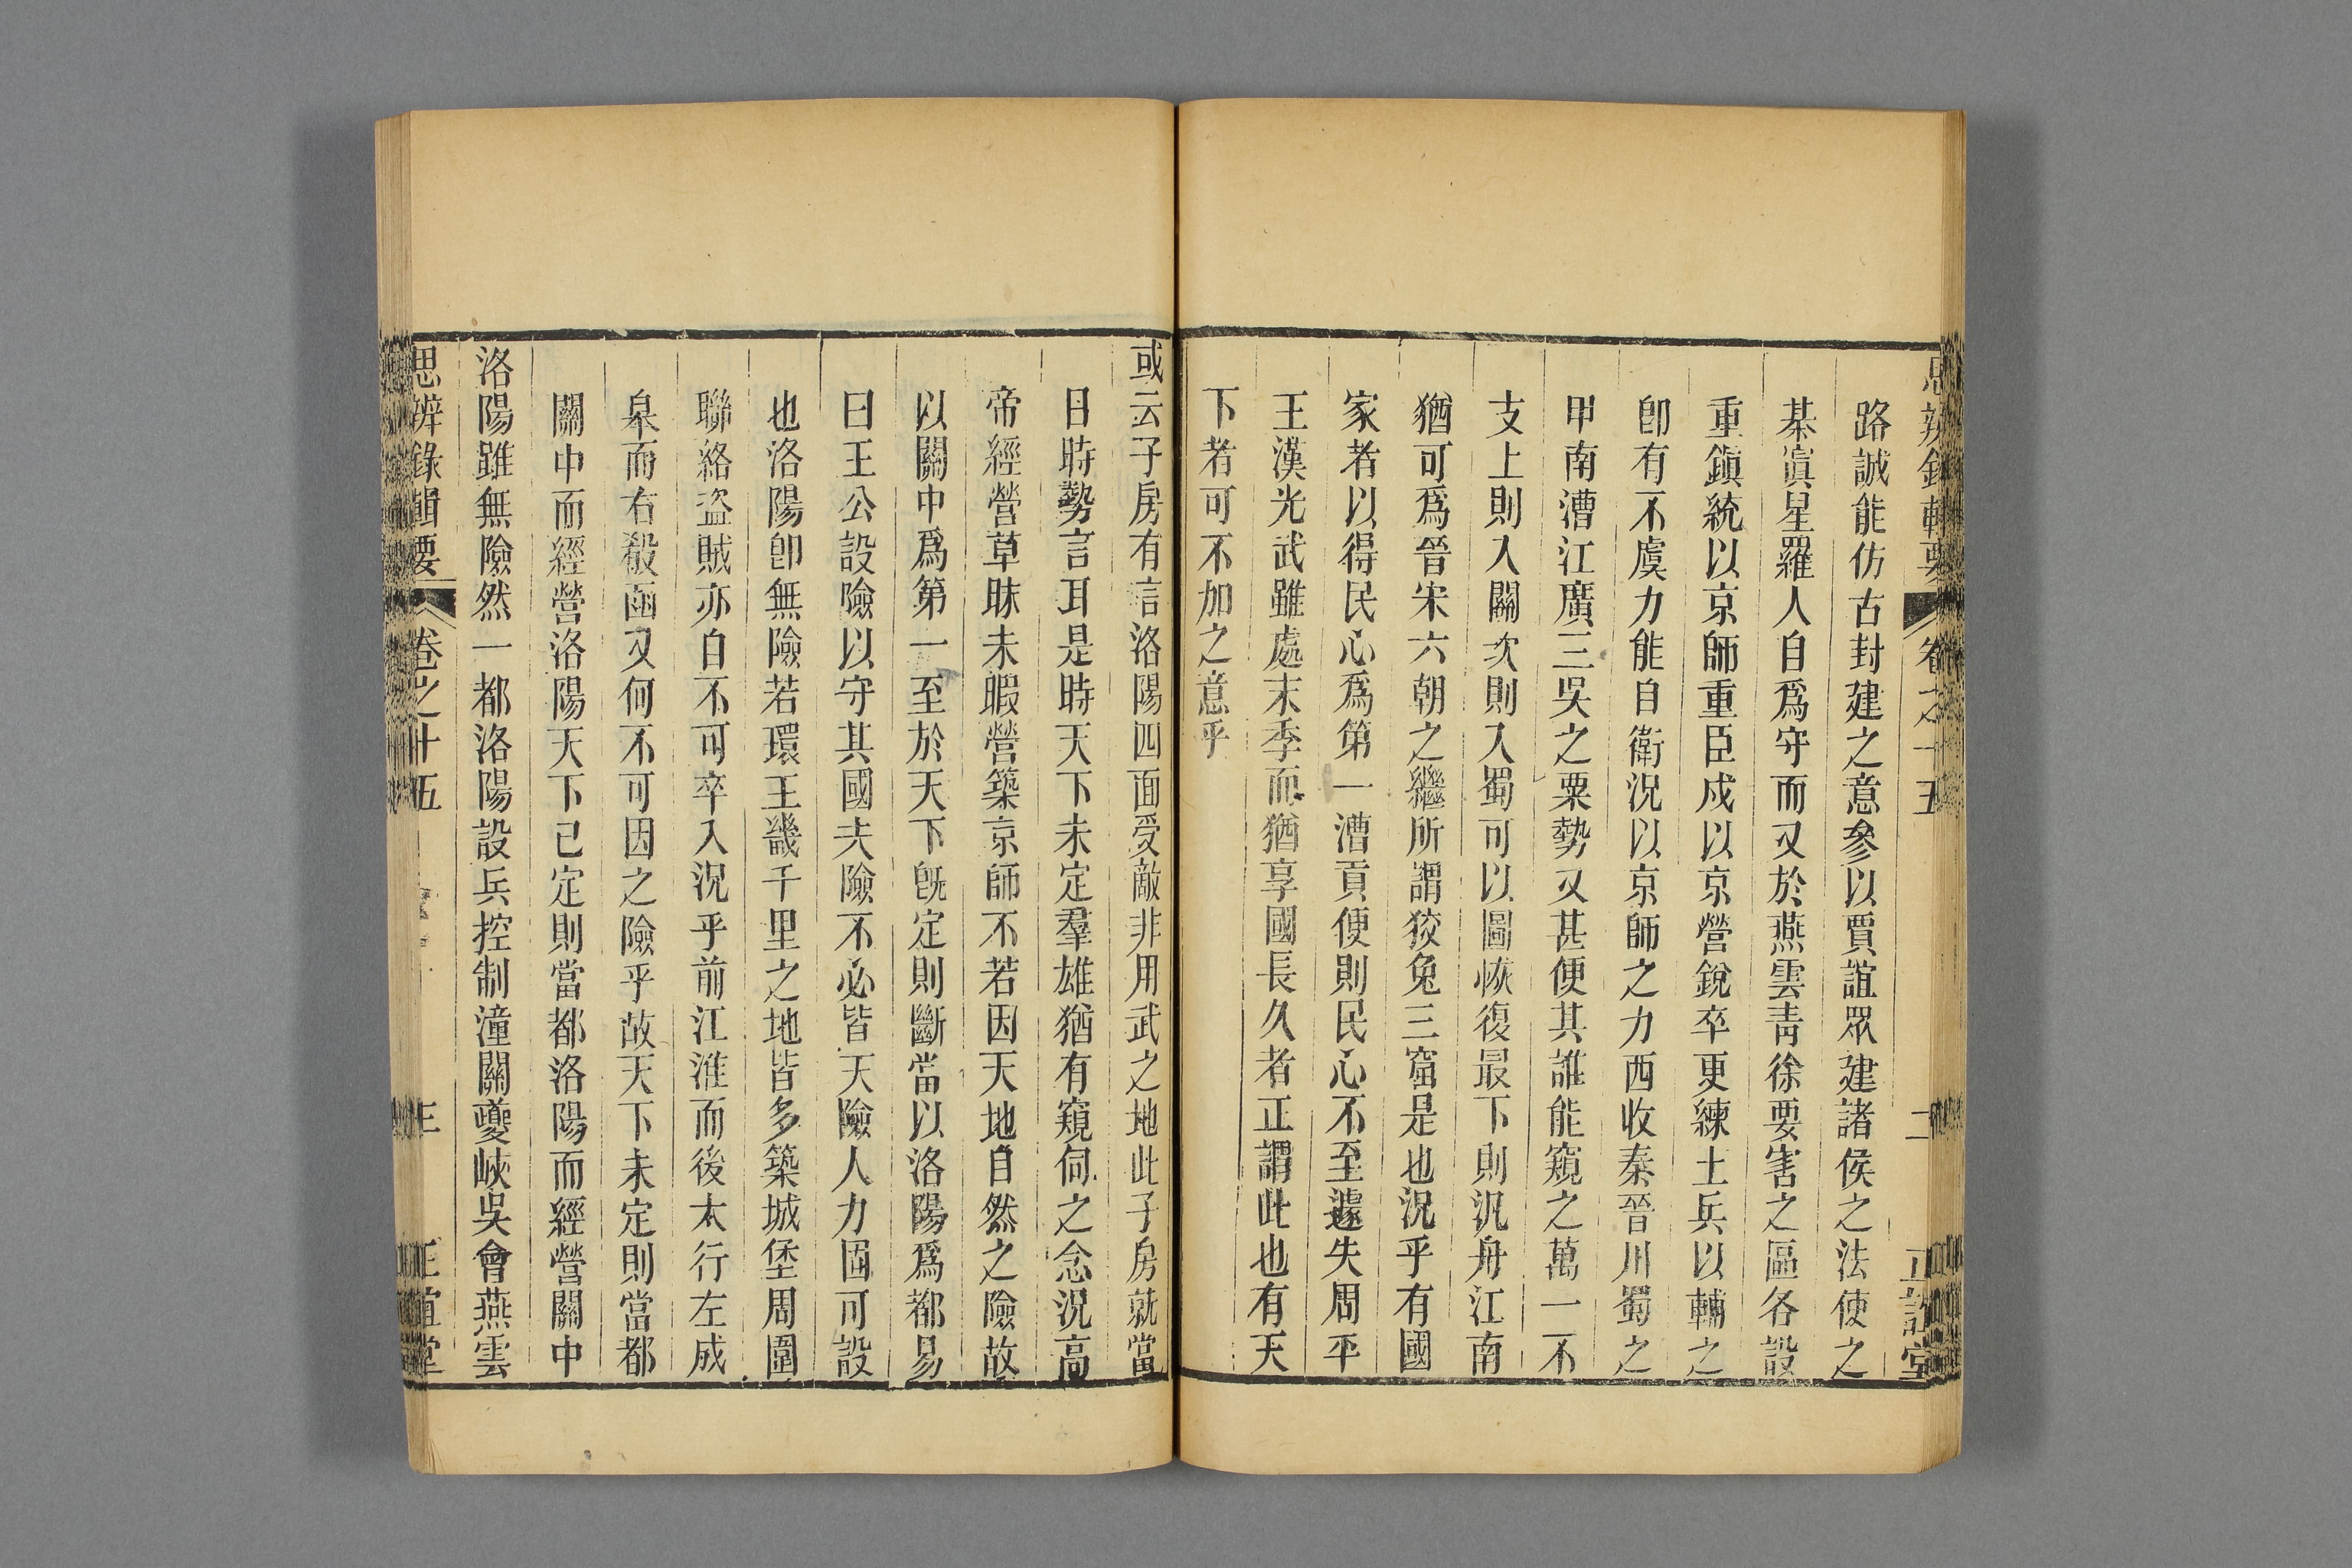 思辨錄輯要 卷之十五 二 正誼堂
路誠能仿古封建之意參以賈誼眾建諸侯之法使之
棊窴星羅人自爲守而又於燕雲靑徐要害之區各設
重鎭統以京師重臣戍以京營銳卒更練土兵以輔之
卽有不虞力能自衛況以京師之力西收秦晉川蜀之
甲南漕江廣三吳之粟勢又甚便其誰能窺之萬一不
支上則入關次則入蜀可以圖恢復最下則汎舟江南
猶可爲晉宋六朝之繼所謂狡兔三窟是也況乎有國
家者以得民心爲第一漕貢便則民心不至遽失周平
王漢光武雖處末季而猶享國長久者正謂此也有天
下者可不加之意乎
或云子房有言洛陽四面受敵非用武之地此子房就當
日時勢言耳是時天下未定羣雄猶有窺伺之念況高
帝經營草昧未暇營築京師不若因天地自然之險故
以關中爲第一至於天下旣定則斷當以洛陽爲都易
曰王公設險以守其國夫險不必皆天險人力固可設
也洛陽卽無險若環王畿千里之地皆多築城堡周圍
聯絡盜賊亦自不可卒入況乎前江淮而後太行左成
皋而右殽函又何不可因之險乎故天下未定則當都
關中而經營洛陽天下已定則當都洛陽而經營關中
洛陽雖無險然一都洛陽設兵控制潼關夔峽吳會燕雲
思辨錄輯要 卷之十五 三 正誼堂